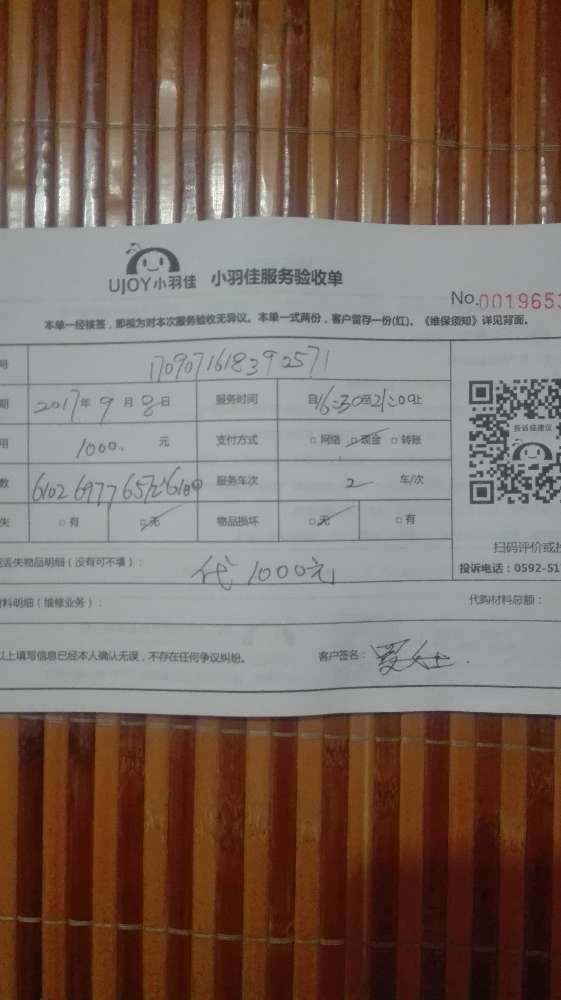 UJOY小羽佳 小羽佳服务验收单
No.001965
本单一经接签，即视为对本次服务验收无异议。本单一式两份，客户留存一份(红)。《维保须知》详见背面。
号 1709071618392571
期 2017年9月8日 服务时间 自16:30至21:00止
用 1000. 元 支付方式 □网络 □现金 □转账
数 6102 6977 6572 618 服务车次 2 车/次
失 □有 □无 物品损坏 □无 □有
投诉或建议
扫码评价或投
投诉电话：0592-51
丢失物品明细（没有可不填）： 代1000元
材料明细（维修业务）： 代购材料总额：
以上填写信息已经本人确认无误，不存在任何争议纠纷。 客户签名：